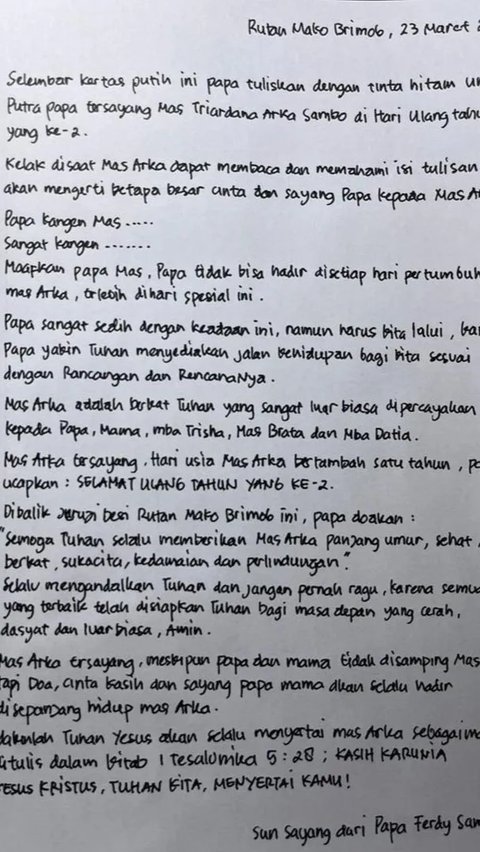 Rutan Mako Brimob, 23 Maret
Selembar kertas putih ini papa tuliskan dengan tinta hitam un
Putra papa tersayang Mas Triardana Arka Sambo di Hari Ulang tahu
yang ke-2.
Kelak disaat Mas Arka dapat membaca dan memahami isi tulisan
akan mengerti betapa besar cinta dan sayang Papa kepada Mas Ar
Papa kangen Mas .....
Sangat kangen .......
Maapkan papa Mas, Papa tidak bisa hadir disetiap hari pertumbuh
mas Arka, terlebih dihari spesial ini.
Papa sangat sedih dengan keadaan ini, namun harus kita lalui, kar
Papa yakin Tuhan menyediakan jalan kehidupan bagi kita sesuai
dengan Rancangan dan RencanaNya.
Mas Arka adalah berkat Tuhan yang sangat luar biasa dipercayakan
kepada Papa, Mama, mba Trisha, Mas Brata dan Mba Datia.
Mas Arka tersayang, Hari usia Mas Arka bertambah satu tahun, pa
ucapkan : SELAMAT ULANG TAHUN YANG KE-2.
Dibalik jeruji besi Rutan Mako Brimob ini, papa doakan :
"Semoga Tuhan selalu memberikan Mas Arka panjang umur, sehat,
berkat, sukacita, kedamaian dan perlindungan".
Selalu mengandalkan Tuhan dan jangan pernah ragu, karena semua
yang terbaik telah disiapkan Tuhan bagi masa depan yang cerah,
dasyat dan luar biasa, Amin.
Mas Arka tersayang, meskipun papa dan mama tidak disamping Mas
tapi Doa, cinta kasih dan sayang papa mama akan selalu hadir
disepanjang hidup mas Arka.
Yakinlah Tuhan Yesus akan selalu menyertai mas Arka sebagaima
ditulis dalam kitab 1 Tesalonika 5:28 ; KASIH KARUNIA
YESUS KRISTUS, TUHAN KITA, MENYERTAI KAMU!
Sun sayang dari Papa Ferdy Sam